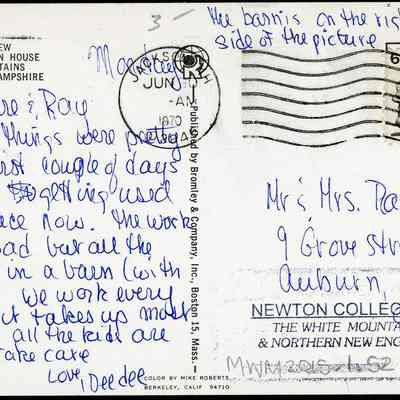 3 -
the barn is on the rig
side of the picture
EW
N HOUSE
TAINS
AMPSHIRE
Monday
JACKSON
JUN
-AM
1970
re & Ray
things were pretty
irst couple of days
getting used
ace now. The work
bad but all the
in a barn (with
we work every
t takes up most
all the kids are
Take care
Love, Deedee
Published by Bromley & Company, Inc., Boston 15, Mass.
COLOR BY MIKE ROBERTS
BERKELEY, CALIF 94710
Mr & Mrs. Ra
9 Grove Str
Auburn,
NEWTON COLLEC
THE WHITE MOUNTA
& NORTHERN NEW ENG
MWM2015.1.52